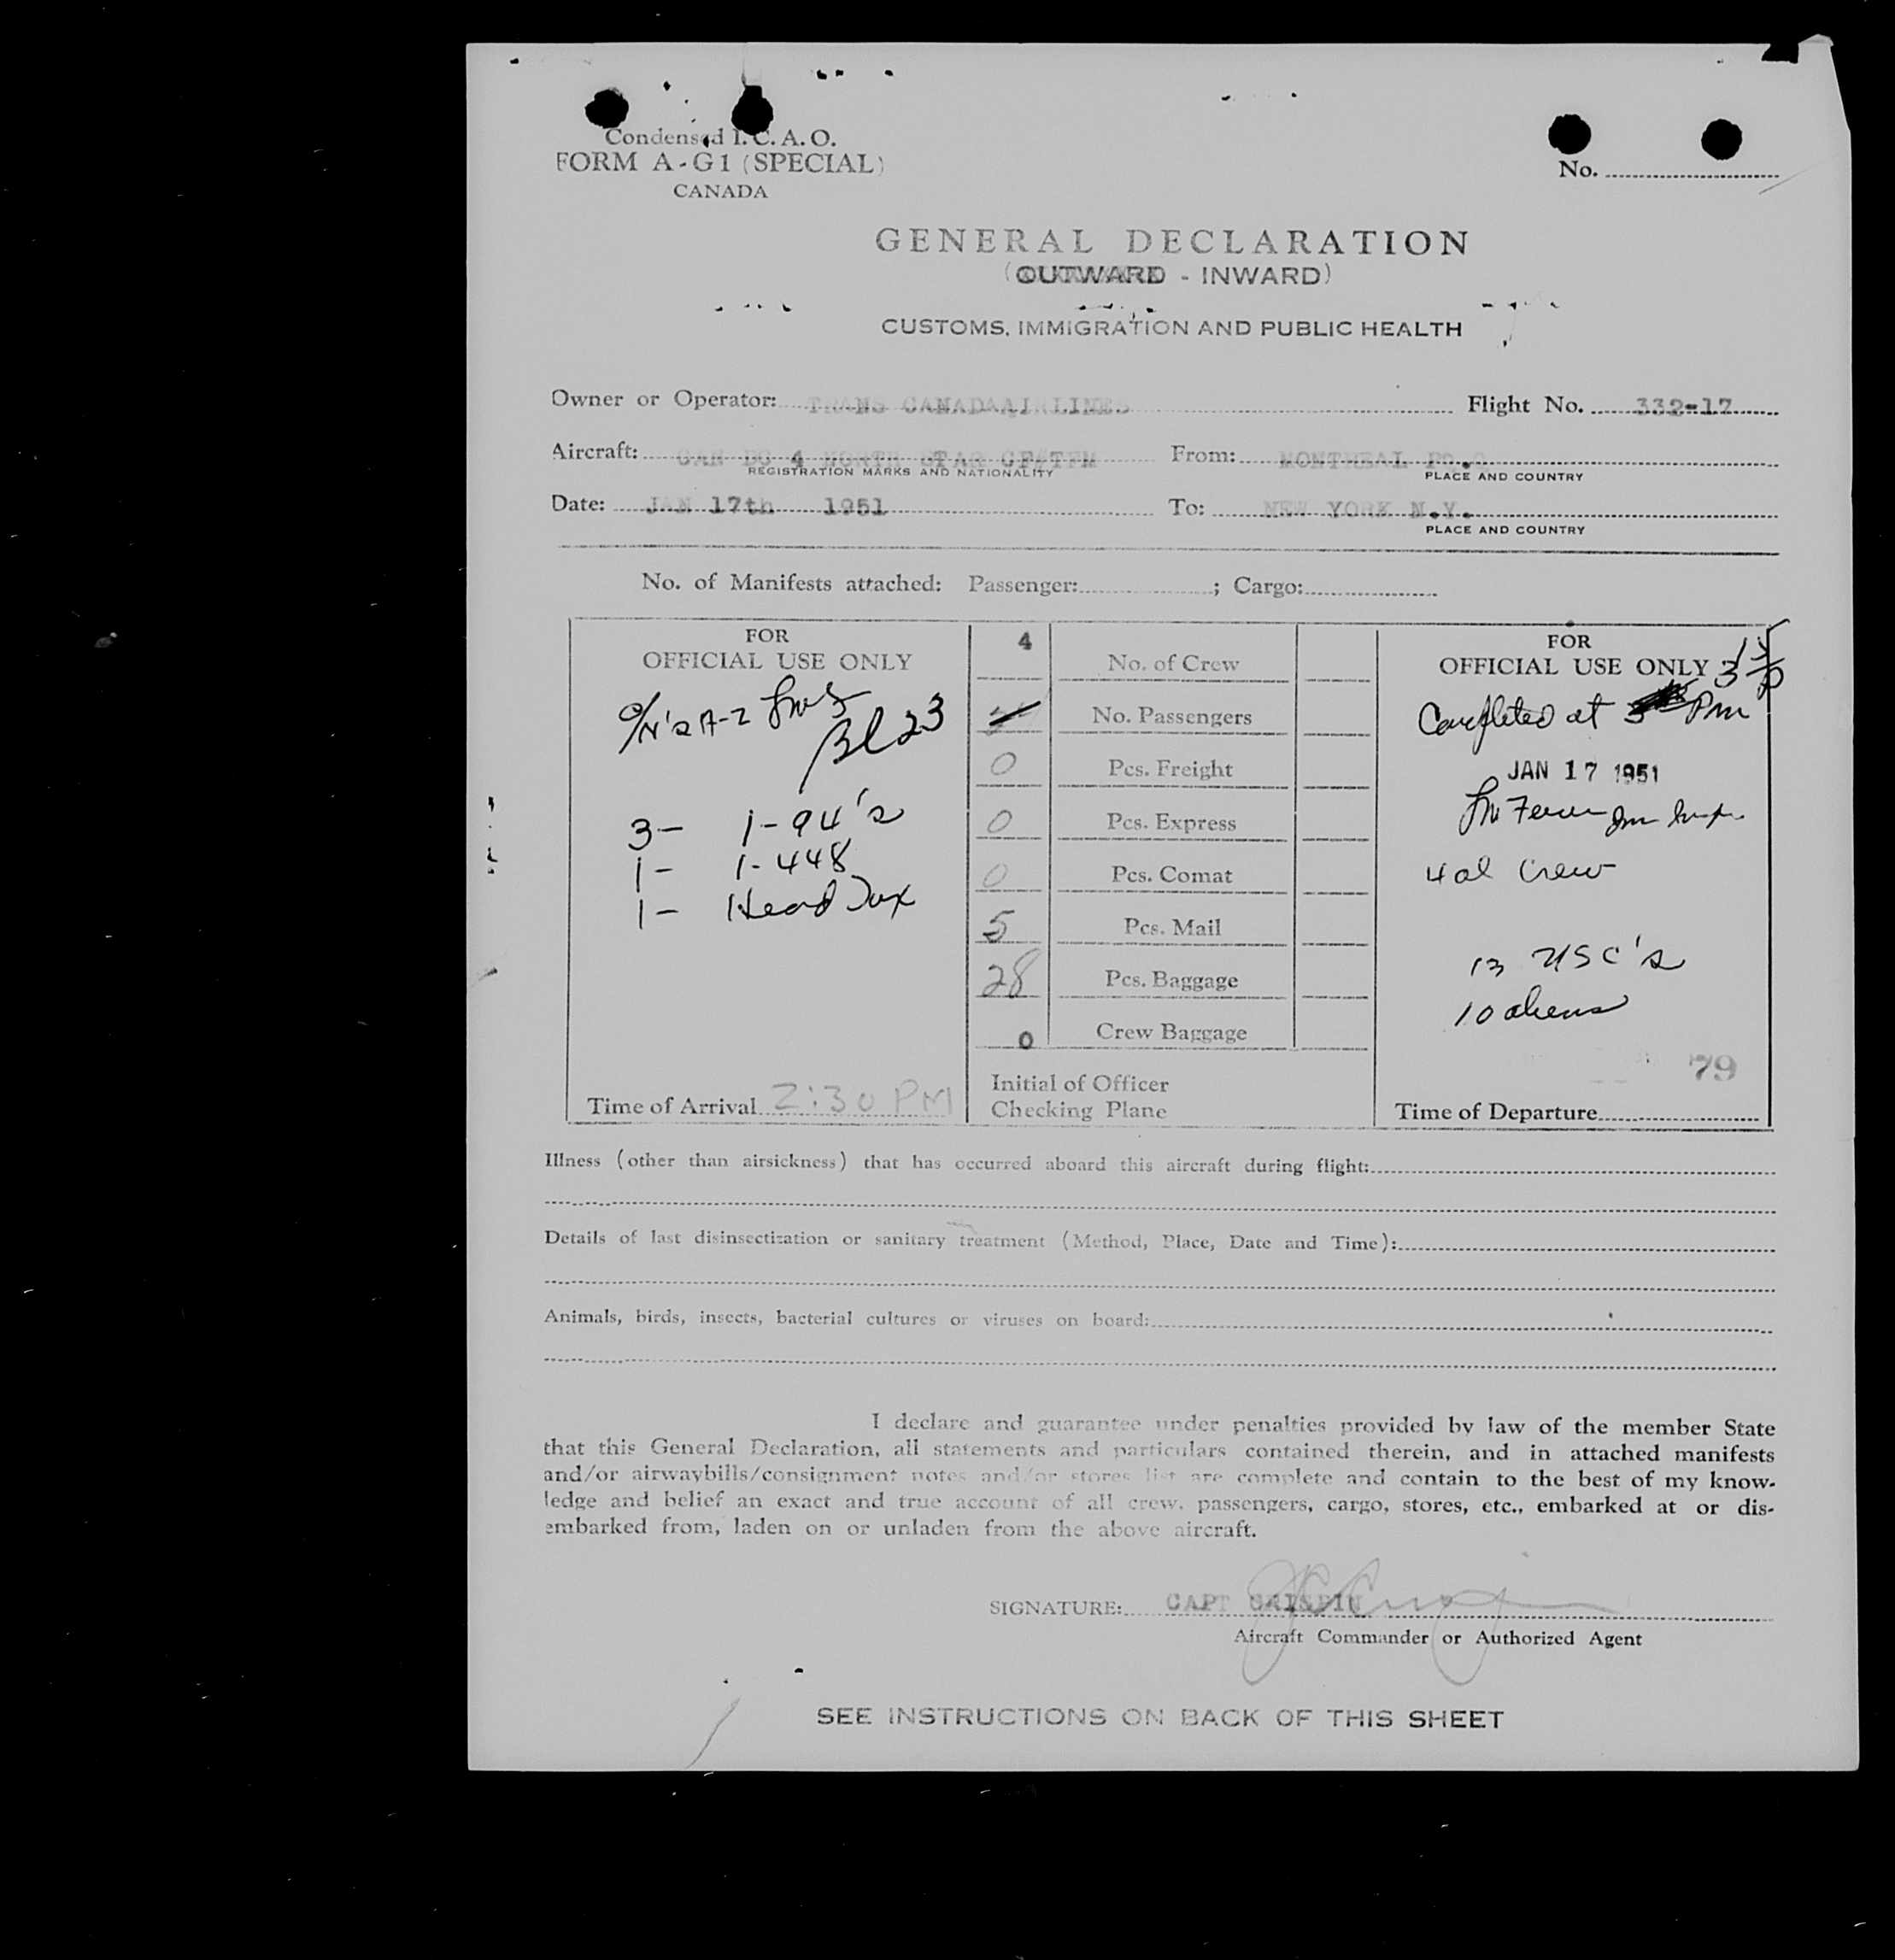 Condensed I.C.A.O.
FORM A-G1 (SPECIAL)
CANADA
No.
GENERAL DECLARATION
(OUTWARD - INWARD)
CUSTOMS, IMMIGRATION AND PUBLIC HEALTH
Owner or Operator: TRANS CANADAAIRLINES Flight No. 332-17
Aircraft: CAN DC 4 NORTH STAR From: MONTREAL
REGISTRATION MARKS AND NATIONALITY PLACE AND COUNTRY
Date: JAN 17th 1951 To: NEW YORK N.Y.
PLACE AND COUNTRY
No. of Manifests attached: Passenger: ; Cargo:
FOR
OFFICIAL USE ONLY
Bl 23
3- 1-94's
1- 1-448
1- Head Tax
Time of Arrival 2:30 PM
4 No. of Crew
No. Passengers
0 Pcs. Freight
0 Pcs. Express
0 Pcs. Comat
5 Pcs. Mail
28 Pcs. Baggage
0 Crew Baggage
Initial of Officer
Checking Plane
FOR
OFFICIAL USE ONLY
Completed at Pm
JAN 17 1951
Crew
13 USC's
10 aliens
79
Time of Departure
Illness (other than airsickness) that has occurred aboard this aircraft during flight:
Details of last disinsectization or sanitary treatment (Method, Place, Date and Time):
Animals, birds, insects, bacterial cultures or viruses on board:
I declare and guarantee under penalties provided by law of the member State
that this General Declaration, all statements and particulars contained therein, and in attached manifests
and/or airwaybills/consignment notes and/or stores list are complete and contain to the best of my know-
ledge and belief an exact and true account of all crew, passengers, cargo, stores, etc., embarked at or dis-
embarked from, laden on or unladen from the above aircraft.
SIGNATURE: CAPT CRISPIN
Aircraft Commander or Authorized Agent
SEE INSTRUCTIONS ON BACK OF THIS SHEET